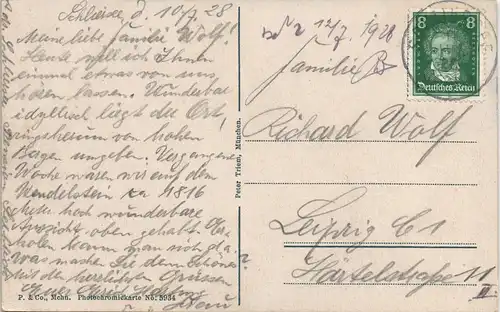 Schliersee, d. 10/7. 28
Meine liebe Familie Wolf!
Heute will ich Ihnen
einmal etwas von uns
hören lassen. Wunderbar
idyllisch liegt der Ort,
ringsherum von hohen
Bergen umgeben. Vergangene
Woche waren wir auf dem
Wendelstein 1816
Meter hoch wunderbare
Aussicht oben gehabt. Er-
holen kann man sich da.
Was machen Sie denn Schönes
Mit den herzlichsten Grüssen
Euer
Frau
P. & Co., Mchn. Photochromiekarte No. 5934
Peter Triem, München.
12/7. 1928
Familie
8 8
Deutsches Reich
Richard Wolf
Leipzig C1
Härtelstraße 11
II.